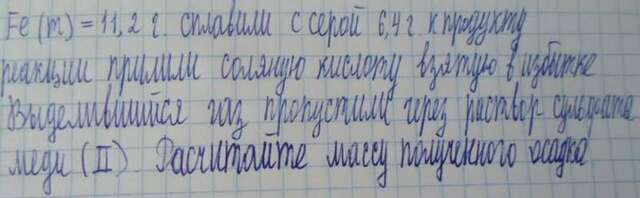 Fe (m) = 11,2 г. сплавили с серой 6,4 г. к продукту
реакции прилили соляную кислоту взятую в избытке
Выделившийся газ пропустили через раствор сульфата
меди (II). Расчитайте массу полученного осадка